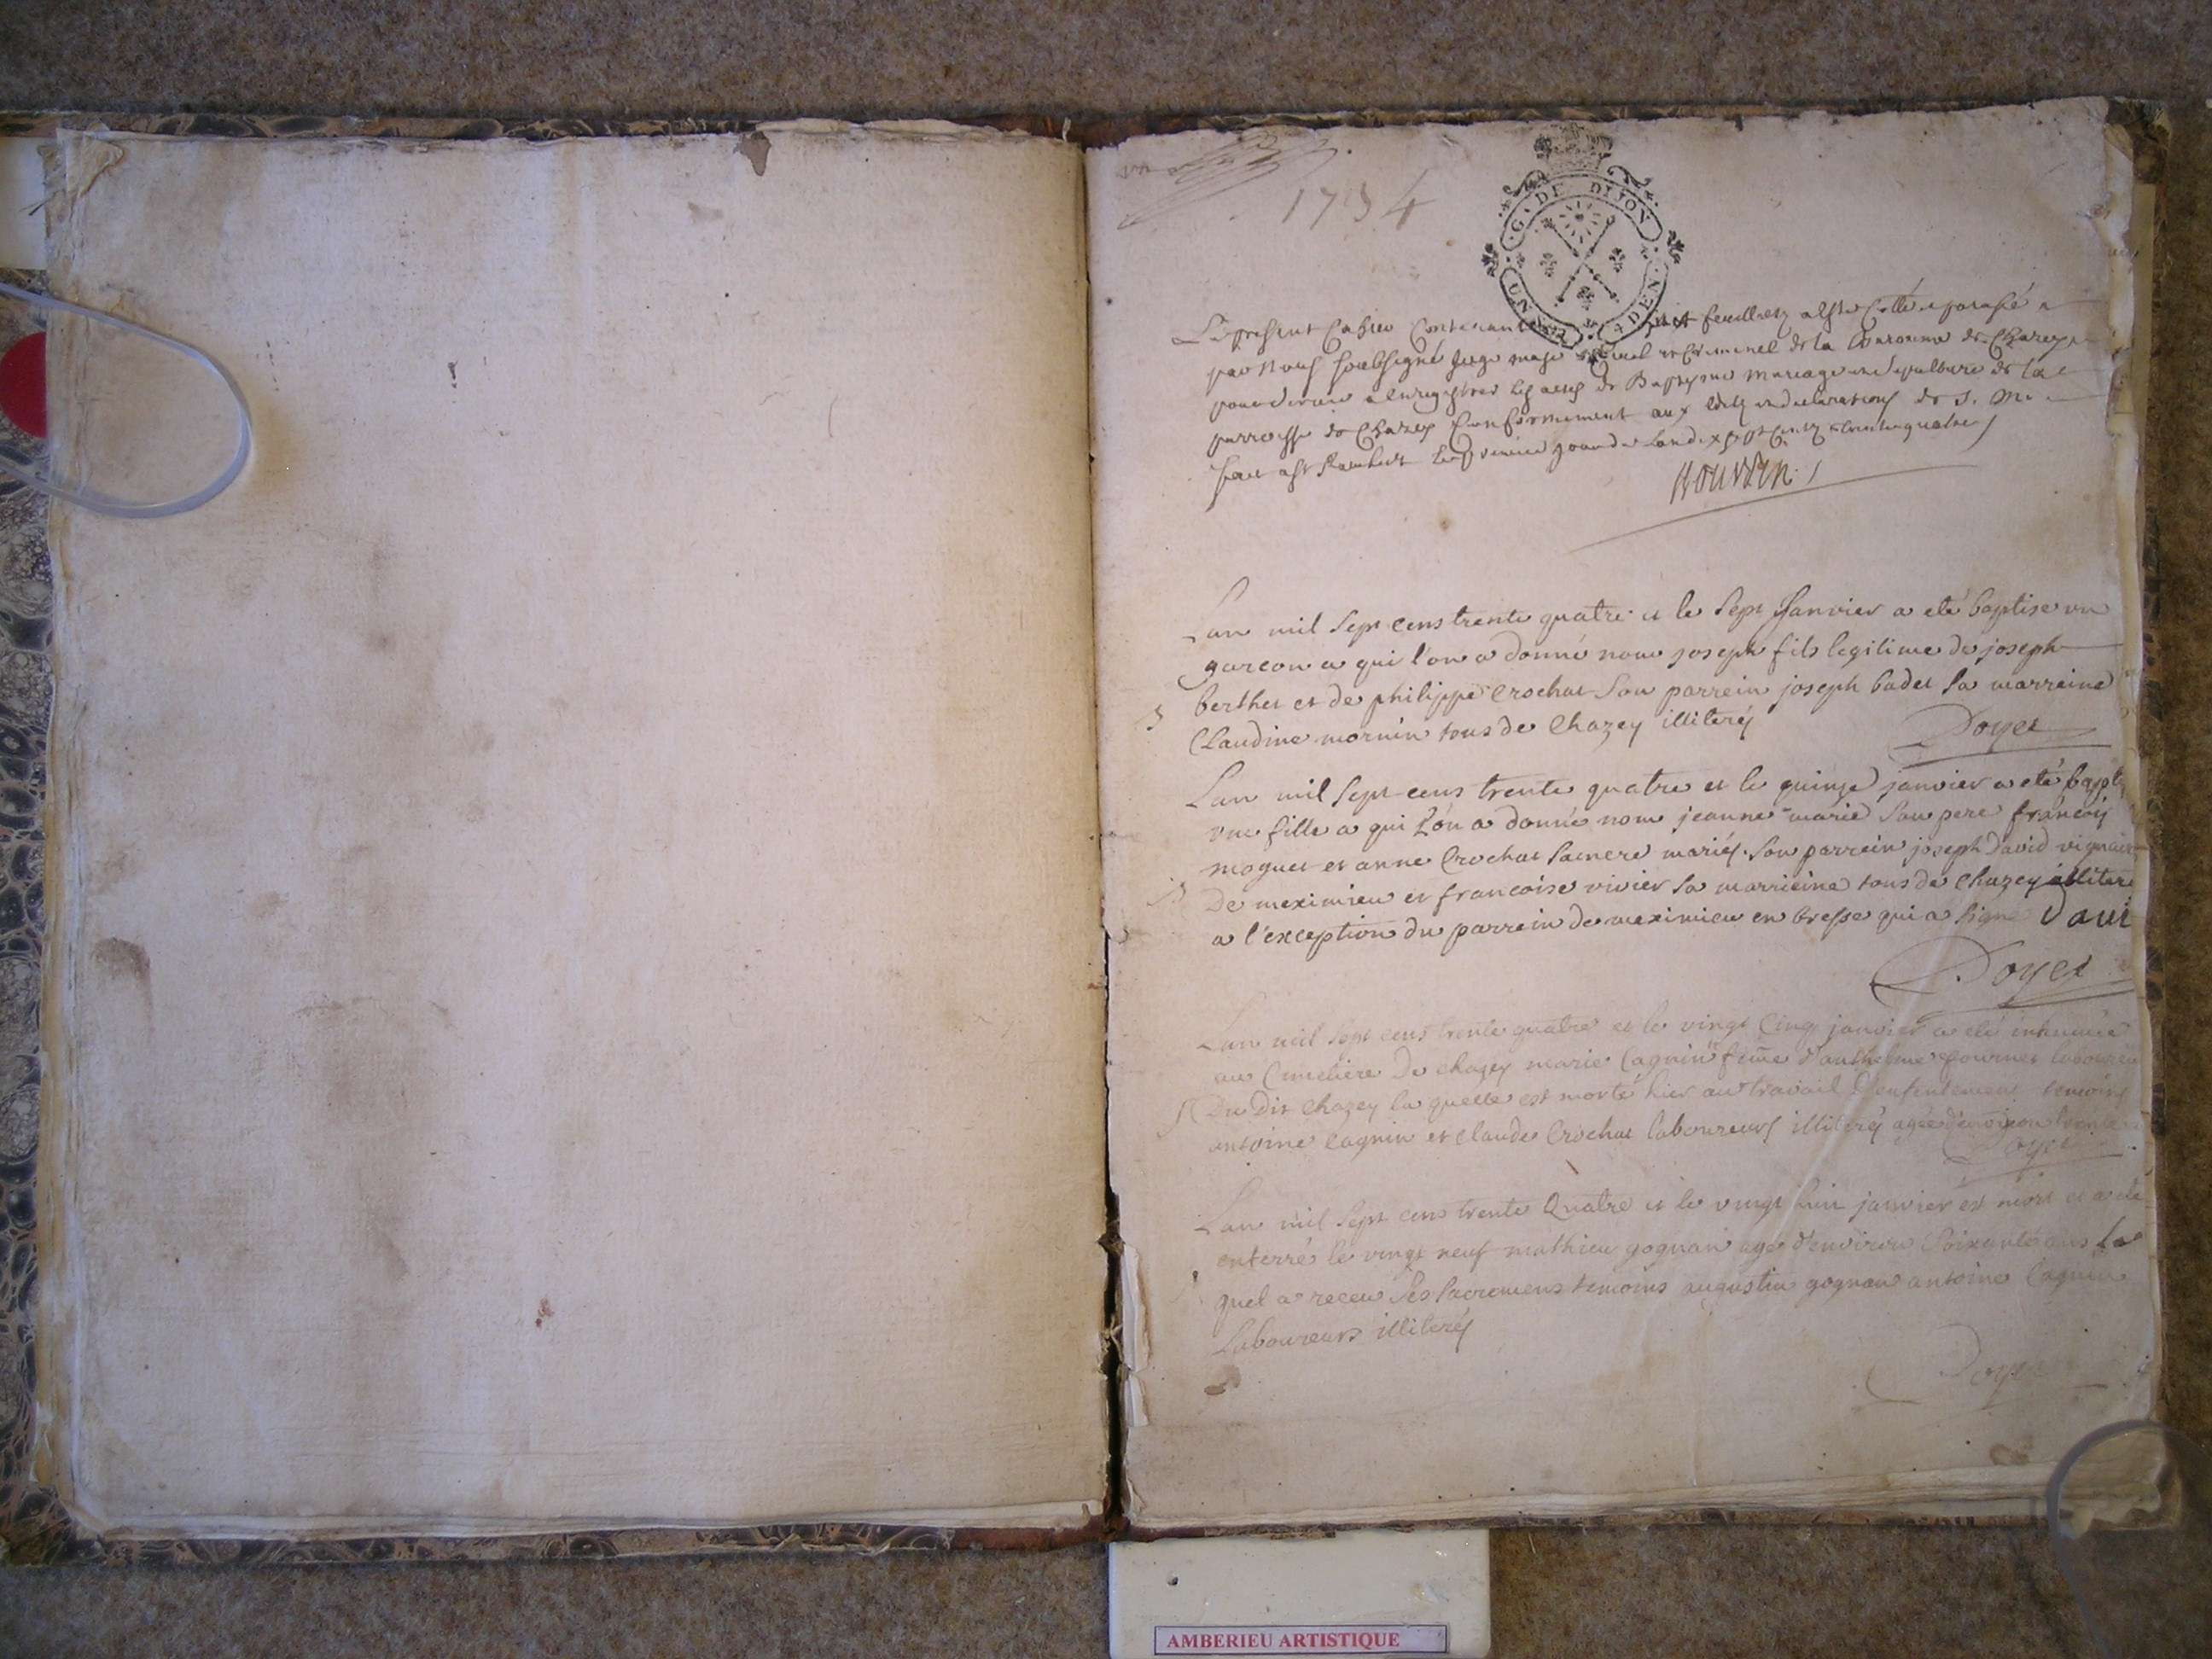 1734
G. DE DIJON
UN SOL
4 DEN.
Le present Cahier Contenant huit feuillets a esté Cotté et paraphé
par Nous soubsigné Juge mage Civil et Criminel de la Baronnie de Chazey
pour servir a enregistrer les actes de Baptesme mariage et sepulture de la
parroisse de Chazey Conformement aux edits et declarations de S. M.
fait a St Rambert le premier jour de Lan dix sept Cents trente quatre
Lan mil sept cens trente quatre et le sept Janvier a eté baptise un
garcon a qui l'on a donné nom joseph fils legitime de joseph
berthet et de philippe Crochat son parrein joseph badet sa marreine
Claudine mornin tous de Chazey illiterés
Doyet
Lan mil sept cens trente quatre et le quinze janvier a eté bapt
une fille a qui l'on a donné nom jeanne marie son pere françois
moguet et anne Crochat sa mere mariés. son parrein joseph David
De meximieu et francoise vivier sa marrieine tous de Chazey illitere
a l'exception du parrein de meximieu en bresse qui a signé Davi
Doyet
Lan mil sept cens trente quatre et le vingt Cinq janvier a eté inhumée
au Cimetiere De chazey marie Cagnin feme d'anthelme fournet laboureur
Du Dit Chazey la quelle est morte hier au travail D'enfantement temoins
antoine Cagnin et Claude Crochat laboureurs illiterés agée d'environ trente
Doyet
Lan mil sept cens trente Quatre et le vingt huit janvier est mort et a eté
enterré le vingt neuf mathieu gognan agé d'environ soixante ans le
quel a receu ses sacremens temoins augustin gognan antoine Cagnin
Laboureurs illiterés
Doyet
AMBERIEU ARTISTIQUE